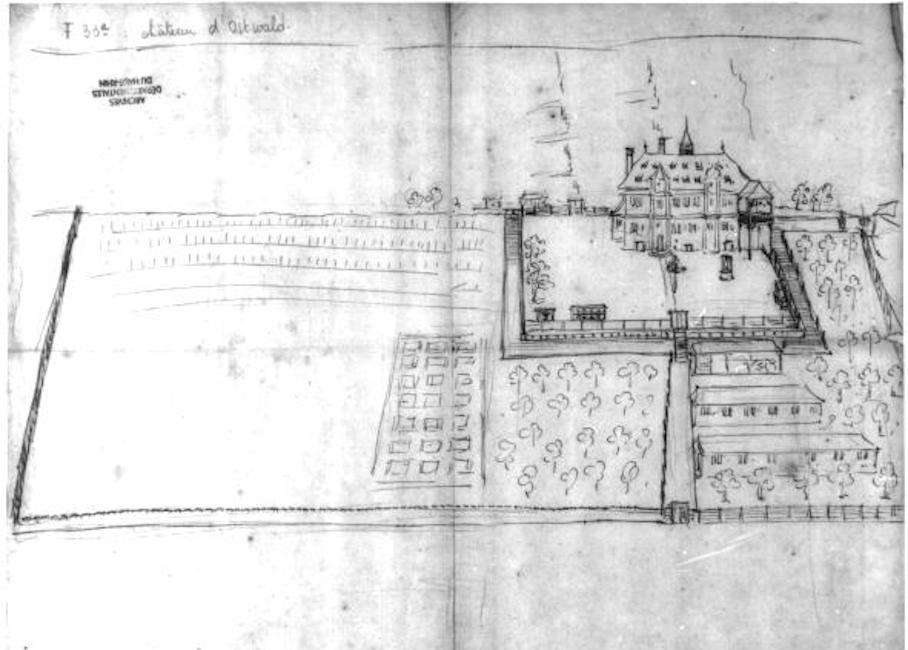 F 33a : château d'Ostwald.
ARCHIVES
DÉPARTEMENTALES
DU HAUT-RHIN